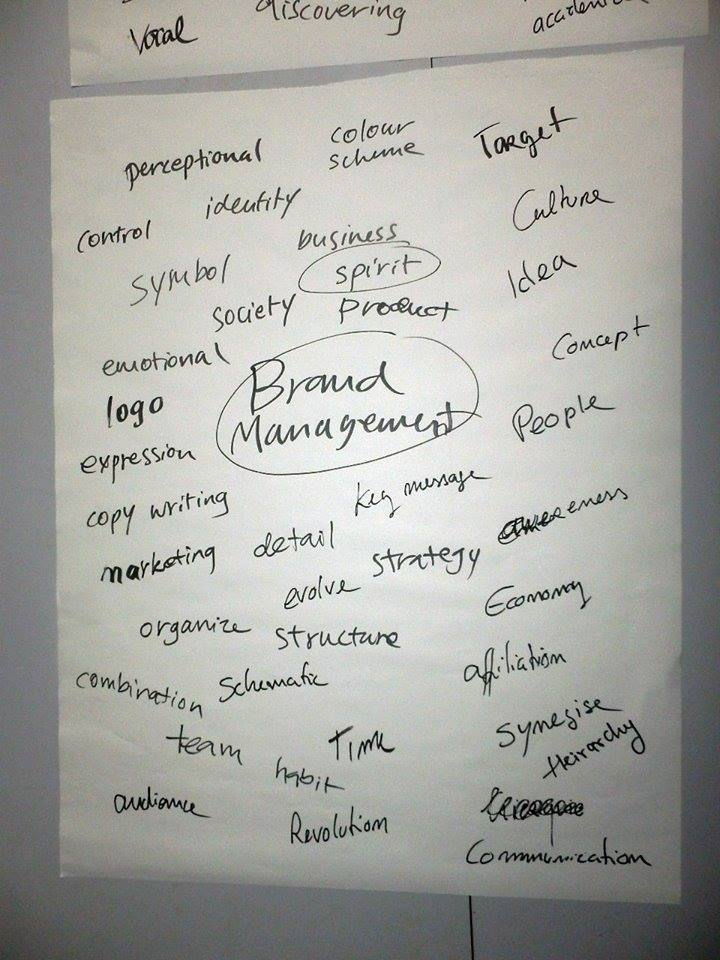 discovering
Vocal
perceptional
colour
scheme
Target
control
identity
Culture
business
symbol
spirit
Idea
society
Product
emotional
Concept
logo
Brand
Management
People
expression
key message
copy writing
detail
strategy
marketing
evolve
Economy
organize
structure
affiliation
combination
Schematic
Synegise
team
Time
Heirarchy
habit
audiance
Revolution
Communication